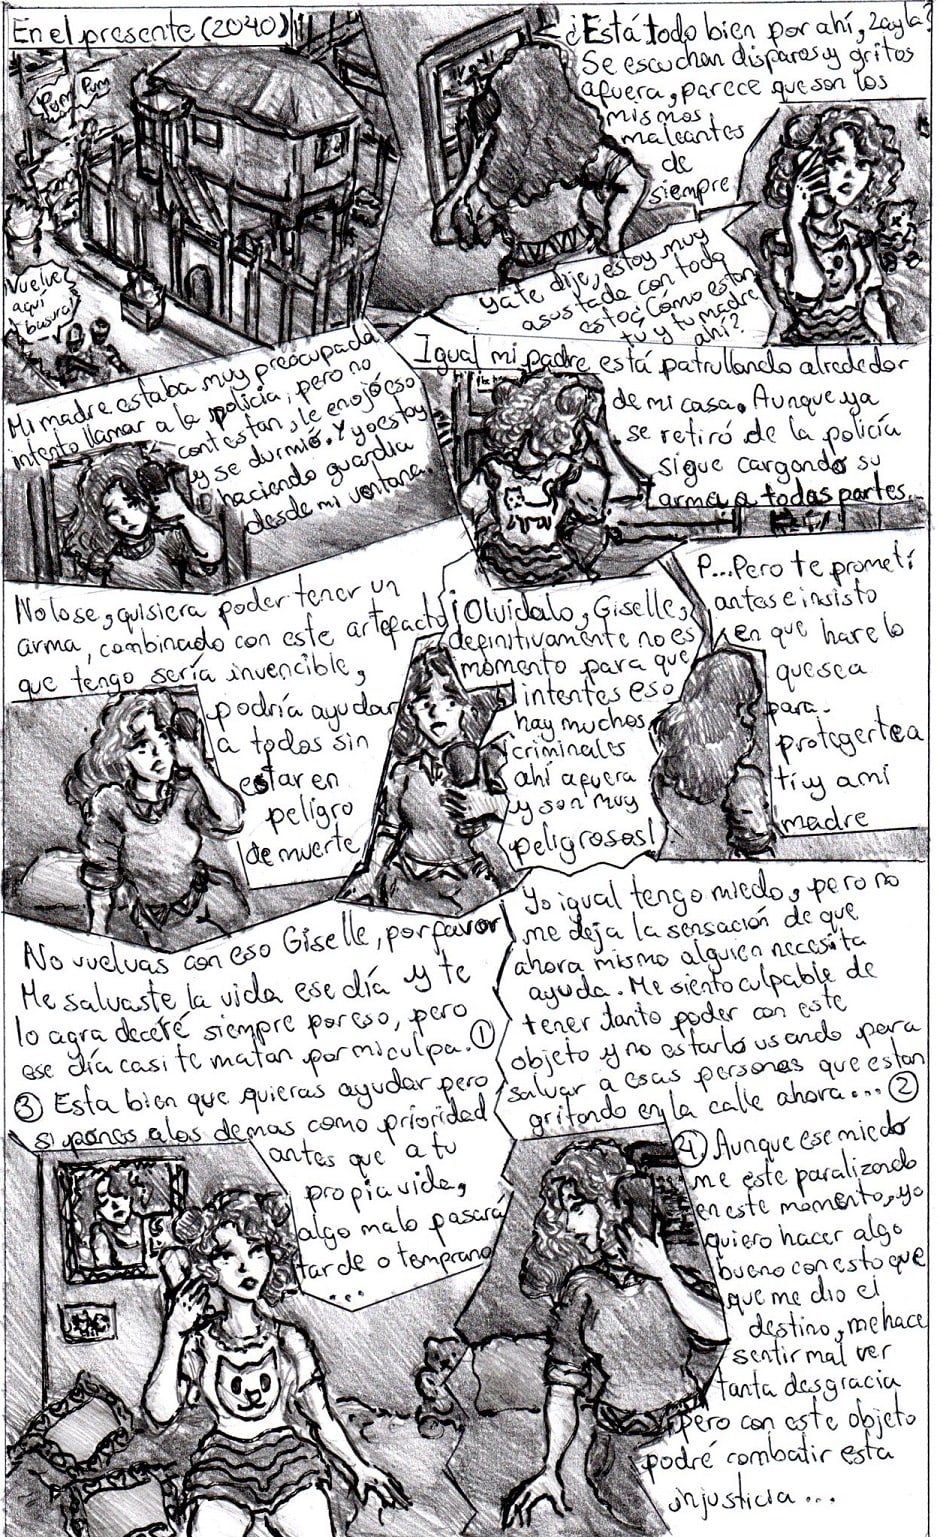 En el presente (2040)
Pum Pum
Vuelve
aquí
basura!
¿Está todo bien por ahí, Zayla?
Se escuchan disparos y gritos
afuera, parece que son los
mismos
maleantes
de
siempre
Ya te dije, estoy muy
asustada con todo
esto ¿Cómo están
tú y tu madre
ahí?
Mi madre estaba muy preocupada
intento llamar a la policia, pero no
contestan, le enojó eso
y se durmió. Y yo estoy
haciendo guardia
desde mi ventana.
Igual mi padre está patrullando alrededor
de mi casa. Aunque ya
se retiró de la policía
sigue cargando su
arma a todas partes.
No lo se, quisiera poder tener un
arma, combinado con este artefacto
que tengo sería invencible,
podría ayudar
a todos sin
estar en
peligro
de muerte
¡Olvidalo, Giselle,
definitivamente no es
momento para que
intentes eso
hay muchos
criminales
ahí afuera
y son muy
peligrosos!
P...Pero te prometí
antes e insisto
en que hare lo
que sea
para
protegerte a
ti y a mi
madre
No vuelvas con eso Giselle, por favor
Me salvaste la vida ese día y te
lo agradeceré siempre por eso, pero
ese día casi te matan por mi culpa. ①
Yo igual tengo miedo, pero no
me deja la sensación de que
ahora mismo alguien necesita
ayuda. Me siento culpable de
tener tanto poder con este
objeto y no estarlo usando para
salvar a esas personas que estan
gritando en la calle ahora... ②
③ Esta bien que quieras ayudar pero
si pones a los demas como prioridad
antes que a tu
propia vida,
algo malo pasará
tarde o temprano
...
④ Aunque ese miedo
me este paralizando
en este momento, yo
quiero hacer algo
bueno con esto que
que me dio el
destino, me hace
sentir mal ver
tanta desgracia
pero con este objeto
podré combatir esta
injusticia...